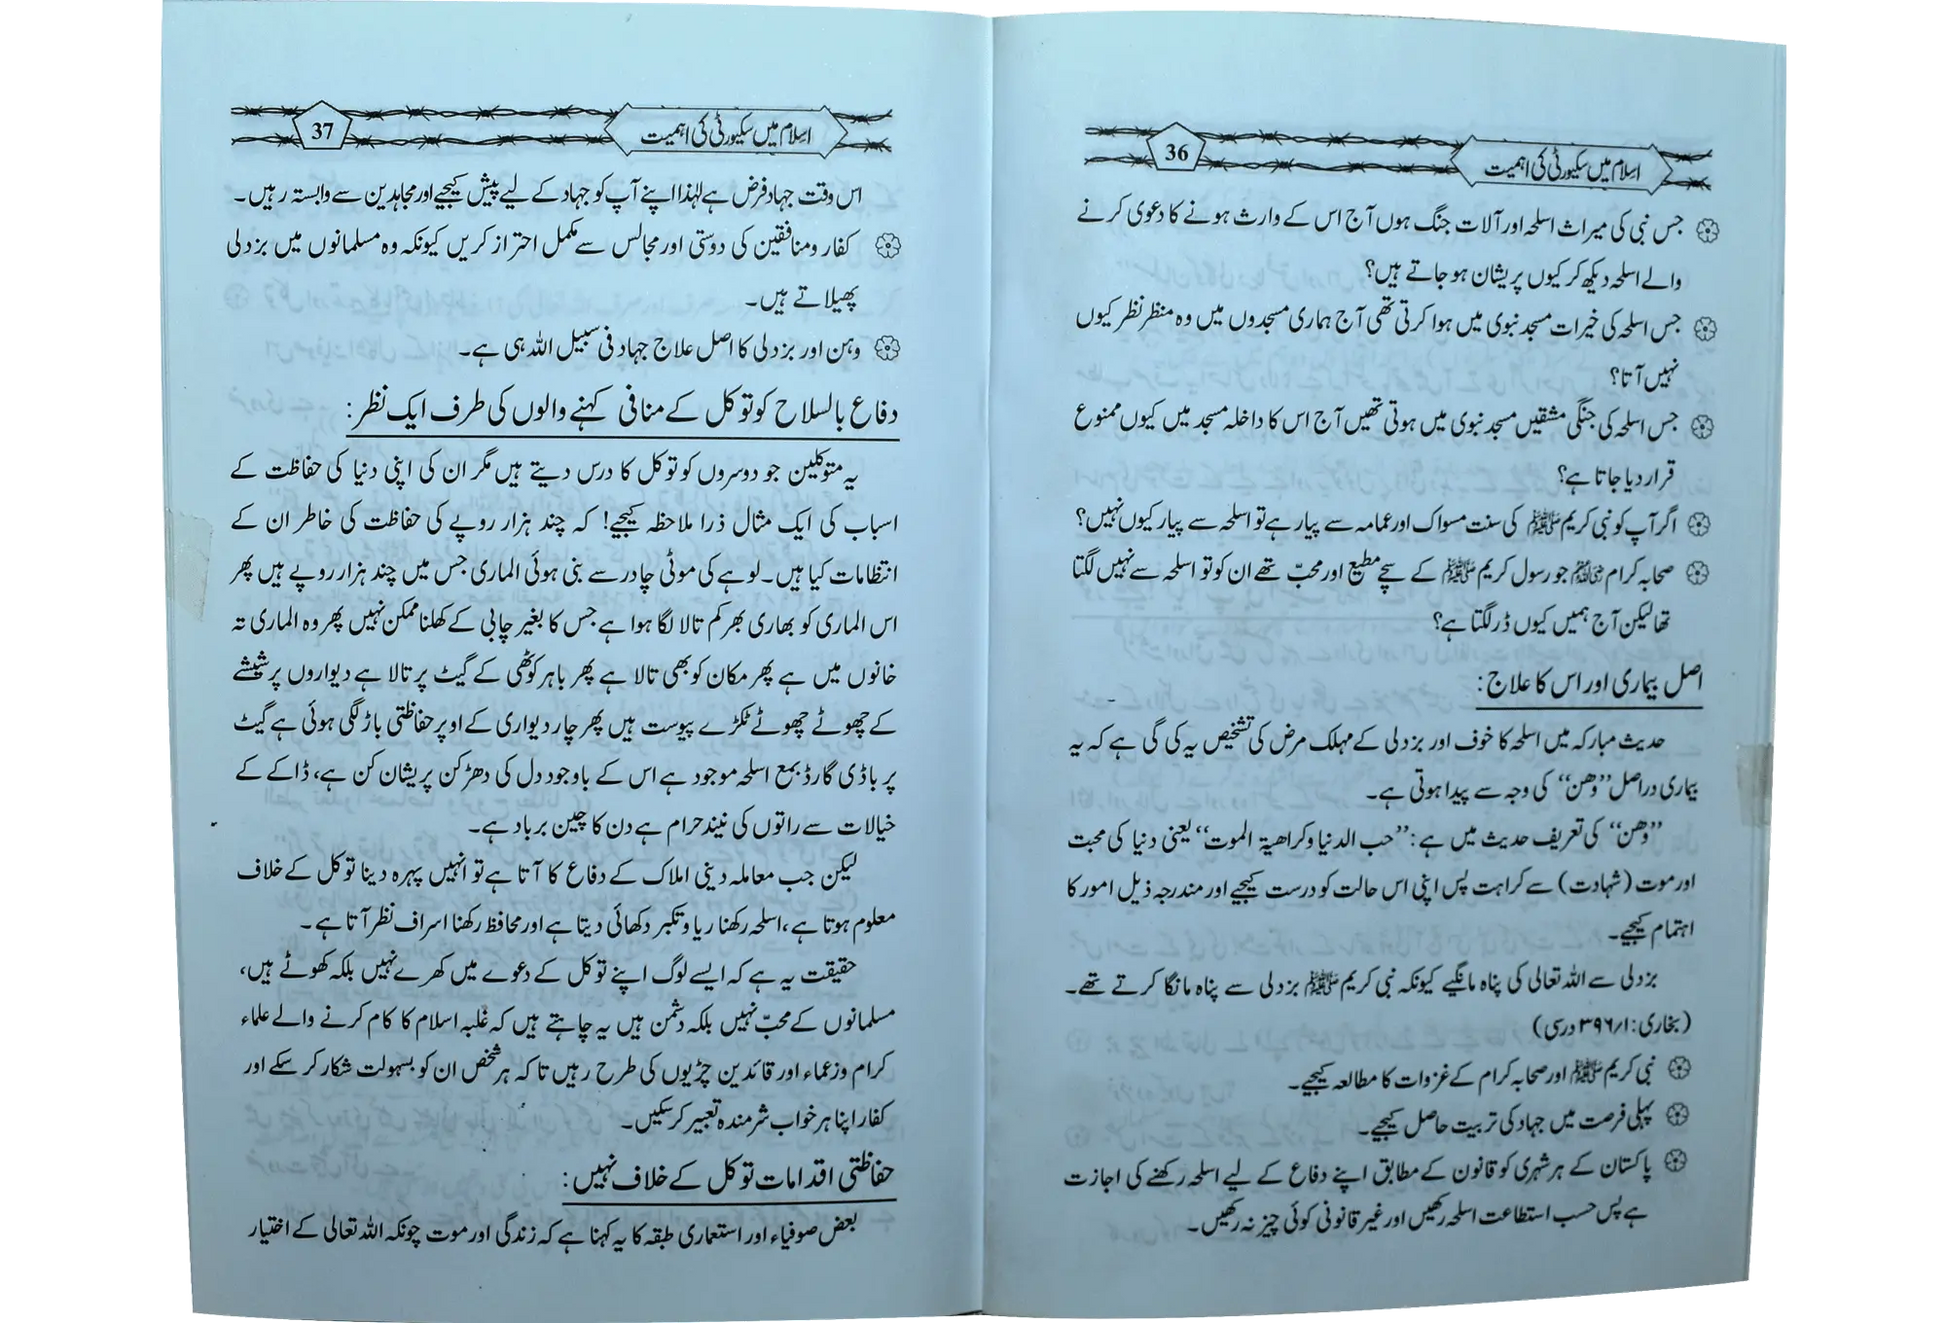 اسلام میں سکیورٹی کی اہمیت
36
جس نبی کی میراث اسلحہ اور آلات جنگ ہوں آج اس کے وارث ہونے کا دعوی کرنے
والے اسلحہ دیکھ کر کیوں پریشان ہو جاتے ہیں؟
جس اسلحہ کی خیرات مسجد نبوی میں ہوا کرتی تھی آج ہماری مسجدوں میں وہ منظر نظر کیوں
نہیں آتا؟
جس اسلحہ کی جنگی مشقیں مسجد نبوی میں ہوتی تھیں آج اس کا داخلہ مسجد میں کیوں ممنوع
قرار دیا جاتا ہے؟
اگر آپ کو نبی کریم ﷺ کی سنت مسواک اور عمامہ سے پیار ہے تو اسلحہ سے پیار کیوں نہیں؟
صحابہ کرام رضی اللہ عنہم جو رسول کریم ﷺ کے سچے مطیع اور محبّ تھے ان کو تو اسلحہ سے نہیں لگتا
تھا لیکن آج ہمیں کیوں ڈر لگتا ہے؟
اصل بیماری اور اس کا علاج:
حدیث مبارکہ میں اسلحہ کا خوف اور بزدلی کے مہلک مرض کی تشخیص یہ کی گی ہے کہ یہ
بیماری دراصل ”وھن“ کی وجہ سے پیدا ہوتی ہے۔
”وھن“ کی تعریف حدیث میں ہے: ”حب الدنیا وکراھیة الموت“ یعنی دنیا کی محبت
اور موت (شہادت) سے کراہت پس اپنی اس حالت کو درست کیجیے اور مندرجہ ذیل امور کا
اہتمام کیجیے۔
بزدلی سے اللہ تعالی کی پناہ مانگیے کیونکہ نبی کریم ﷺ بزدلی سے پناہ مانگا کرتے تھے۔
(بخاری: ۱/۳۹۶ درسی)
نبی کریم ﷺ اور صحابہ کرام کے غزوات کا مطالعہ کیجیے۔
پہلی فرصت میں جہاد کی تربیت حاصل کیجیے۔
پاکستان کے ہر شہری کو قانون کے مطابق اپنے دفاع کے لیے اسلحہ رکھنے کی اجازت
ہے پس حسب استطاعت اسلحہ رکھیں اور غیر قانونی کوئی چیز نہ رکھیں۔
اسلام میں سکیورٹی کی اہمیت
37
اس وقت جہاد فرض ہے لہٰذا اپنے آپ کو جہاد کے لیے پیش کیجیے اور مجاہدین سے وابستہ رہیں۔
کفار ومنافقین کی دوستی اور مجالس سے مکمل احتراز کریں کیونکہ وہ مسلمانوں میں بزدلی
پھیلاتے ہیں۔
وہن اور بزدلی کا اصل علاج جہاد فی سبیل اللہ ہی ہے۔
دفاع بالسلاح کو توکل کے منافی کہنے والوں کی طرف ایک نظر:
یہ متوکلین جو دوسروں کو توکل کا درس دیتے ہیں مگر ان کی اپنی دنیا کی حفاظت کے
اسباب کی ایک مثال ذرا ملاحظہ کیجیے! کہ چند ہزار روپے کی حفاظت کی خاطر ان کے
انتظامات کیا ہیں۔ لوہے کی موٹی چادر سے بنی ہوئی الماری جس میں چند ہزار روپے ہیں پھر
اس الماری کو بھاری بھر کم تالا لگا ہوا ہے جس کا بغیر چابی کے کھلنا ممکن نہیں پھر وہ الماری تہ
خانوں میں ہے پھر مکان کو بھی تالا ہے پھر باہر کوٹھی کے گیٹ پر تالا ہے دیواروں پر شیشے
کے چھوٹے چھوٹے ٹکڑے پیوست ہیں پھر چار دیواری کے اوپر حفاظتی باڑ لگی ہوئی ہے گیٹ
پر باڈی گارڈ بمع اسلحہ موجود ہے اس کے باوجود دل کی دھڑکن پریشان کن ہے، ڈاکے کے
خیالات سے راتوں کی نیند حرام ہے دن کا چین برباد ہے۔
لیکن جب معاملہ دینی املاک کے دفاع کا آتا ہے تو انہیں پہرہ دینا توکل کے خلاف
معلوم ہوتا ہے، اسلحہ رکھنا ریا وتکبر دکھائی دیتا ہے اور محافظ رکھنا اسراف نظر آتا ہے۔
حقیقت یہ ہے کہ ایسے لوگ اپنے توکل کے دعوے میں کھرے نہیں بلکہ کھوٹے ہیں،
مسلمانوں کے محبّ نہیں بلکہ دشمن ہیں یہ چاہتے ہیں کہ غلبہ اسلام کا کام کرنے والے علماء
کرام وزعماء اور قائدین چڑیوں کی طرح رہیں تاکہ ہر شخص ان کو بسہولت شکار کر سکے اور
کفار اپنا ہر خواب شرمندہ تعبیر کر سکیں۔
حفاظتی اقدامات توکل کے خلاف نہیں:
بعض صوفیاء اور استعماری طبقہ کا یہ کہنا ہے کہ زندگی اور موت چونکہ اللہ تعالی کے اختیار